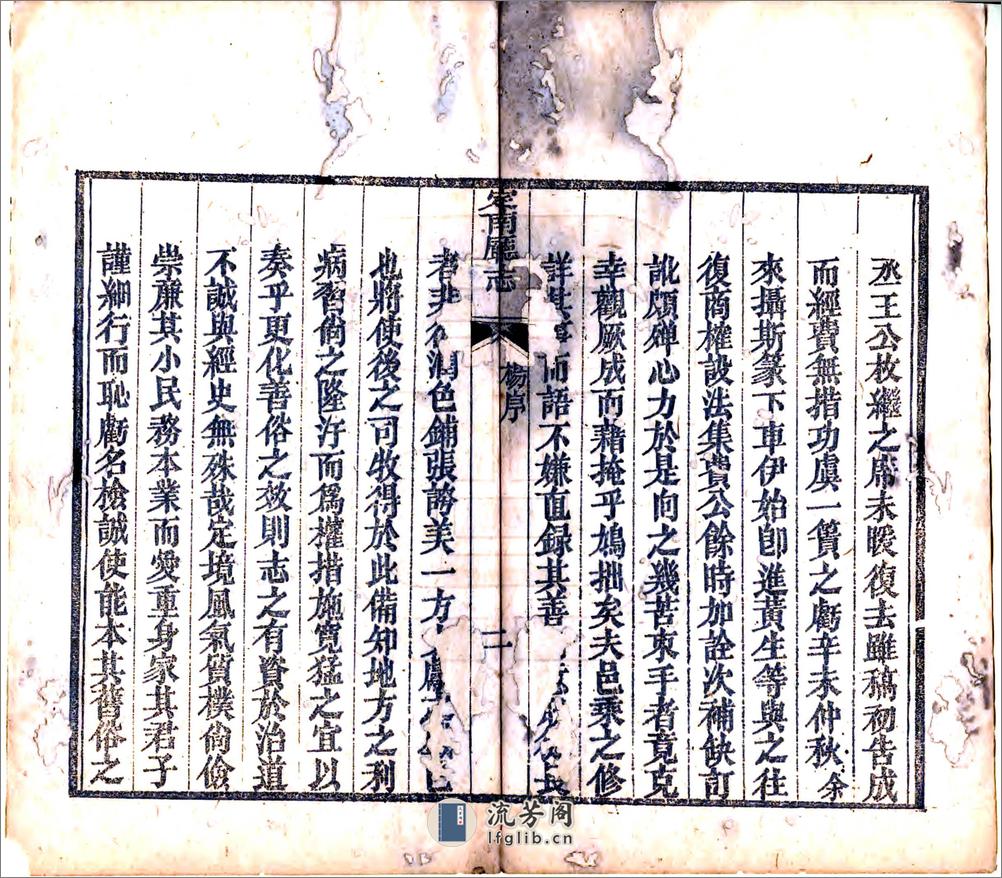 丞王公枚繼之席未暖復去雖稿初告成
而經費無措功虞一簣之虧辛未仲秋余
來攝斯篆下車伊始卽進黃生等與之往
復商榷設法集貲公餘時加詮次補缺訂
訛頗殫心力於是向之幾苦束手者竟克
幸觀厥成而藉掩乎鳩拙矣夫邑乘之修
詳其事而語不嫌直録其善
定南廳志
楊序
二
者非徒潤色鋪張誇美一方
也將使後之司牧得於此備知地方之利
病習尙之隆汙而爲權措施寬猛之宜以
奏乎更化善俗之效則志之有資於治道
不誠與經史無殊哉定境風氣質樸尙儉
崇廉其小民務本業而愛重身家其君子
謹細行而恥虧名檢誠使能本其舊俗之
流芳阁
lfglib.cn